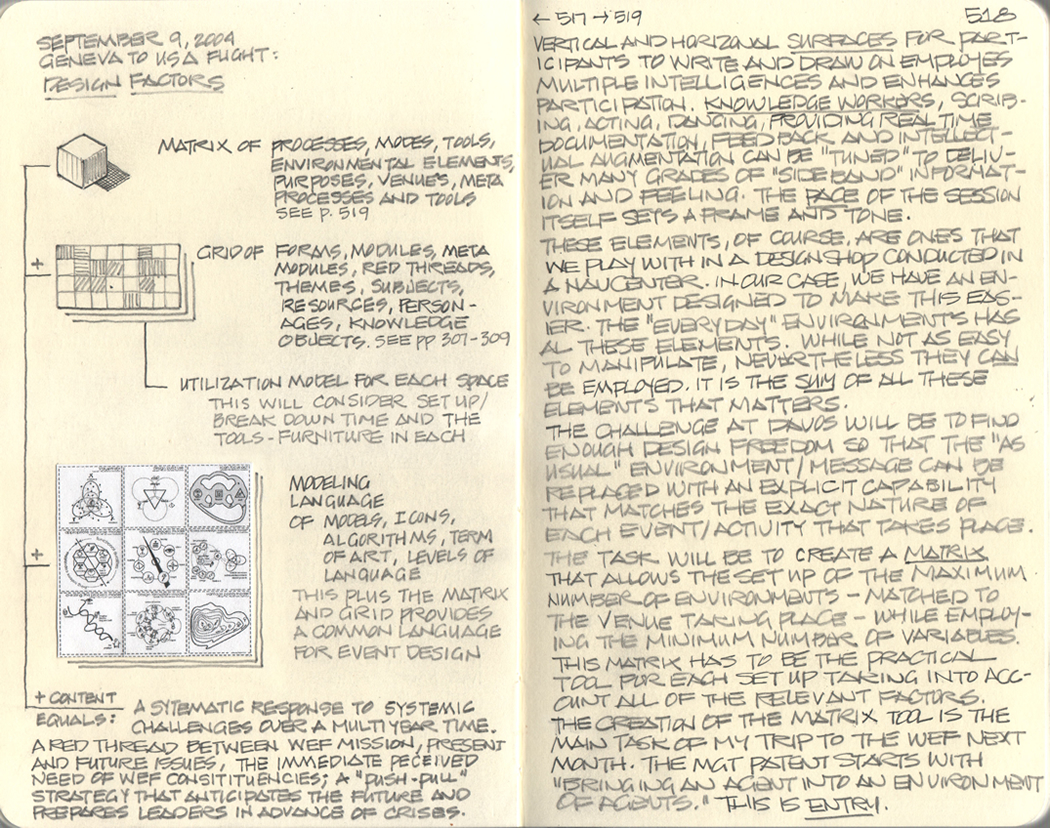 SEPTEMBER 9, 2004
GENEVA TO USA FLIGHT:
DESIGN FACTORS
MATRIX OF PROCESSES, MODES, TOOLS,
ENVIRONMENTAL ELEMENTS,
PURPOSES, VENUES, META
PROCESSES AND TOOLS
SEE P. 519
+
GRID OF FORMS, MODULES, META
MODULES, RED THREADS,
THEMES, SUBJECTS,
RESOURCES, PERSON-
AGES, KNOWLEDGE
OBJECTS. SEE PP 307-309
UTILIZATION MODEL FOR EACH SPACE
THIS WILL CONSIDER SET UP/
BREAK DOWN TIME AND THE
TOOLS-FURNITURE IN EACH
+
MODELING
LANGUAGE
OF MODELS, ICONS,
ALGORITHMS, TERM
OF ART, LEVELS OF
LANGUAGE
THIS PLUS THE MATRIX
AND GRID PROVIDES
A COMMON LANGUAGE
FOR EVENT DESIGN
+ CONTENT
EQUALS: A SYTEMATIC RESPONSE TO SYSTEMIC
CHALLENGES OVER A MULTI YEAR TIME.
A RED THREAD BETWEEN WEF MISSION, PRESENT
AND FUTURE ISSUES, THE IMMEDIATE PECEIVED
NEED OF WEF CONSITITUENCIES; A "PUSH-PULL"
STRATEGY THAT ANTICIPATES THE FUTURE AND
PREPARES LEADERS IN ADVANCE OF CRISES.
← 517 → 519
518
VERTICAL AND HORIZONAL SURFACES FOR PART-
ICIPANTS TO WRITE AND DRAW ON EMPLOYES
MULTIPLE INTELLIGENCES AND ENHANCES
PARTICIPATION. KNOWLEDGE WORKERS, SCRIB-
ING, ACTING, DANCING, PROVIDING REAL TIME
DOCUMENTATION, FEED BACK AND INTELLECT-
UAL AUGMENTATION CAN BE "TUNED" TO DELIV-
ER MANY GRADES OF "SIDE BAND" INFORMAT-
ION AND FEELING. THE PACE OF THE SESSION
ITSELF SETS A FRAME AND TONE.
THESE ELEMENTS, OF COURSE, ARE ONES THAT
WE PLAY WITH IN A DESIGNSHOP CONDUCTED IN
A NAVCENTER. IN OUR CASE, WE HAVE AN EN-
VIRONMENT DESIGNED TO MAKE THIS EAS-
IER. THE "EVERY DAY" ENVIRONMENTS HAS
AL THESE ELEMENTS. WHILE NOT AS EASY
TO MANIPULATE, NEVERTHELESS THEY CAN
BE EMPLOYED. IT IS THE SUM OF ALL THESE
ELEMENTS THAT MATTERS.
THE CHALLENGE AT DAVOS WILL BE TO FIND
ENOUGH DESIGN FREEDOM SO THAT THE "AS
USUAL" ENVIRONMENT/MESSAGE CAN BE
REPLACED WITH AN EXPLICIT CAPABILITY
THAT MATCHES THE EXACT NATURE OF
EACH EVENT/ACTIVITY THAT TAKES PLACE.
THE TASK WILL BE TO CREATE A MATRIX
THAT ALLOWS THE SET UP OF THE MAXIMUM
NUMBER OF ENVIRONMENTS - MATCHED TO
THE VENUE TAKING PLACE - WHILE EMPLOY-
ING THE MINIMUM NUMBER OF VARIABLES.
THIS MATRIX HAS TO BE THE PRACTICAL
TOOL FOR EACH SET UP TAKING INTO ACC-
OUNT ALL OF THE RELEVANT FACTORS.
THE CREATION OF THE MATRIX TOOL IS THE
MAIN TASK OF MY TRIP TO THE WEF NEXT
MONTH. THE MGT PATENT STARTS WITH
"BRINGING AN AGENT INTO AN ENVIRONMENT
OF AGENTS." THIS IS ENTRY.